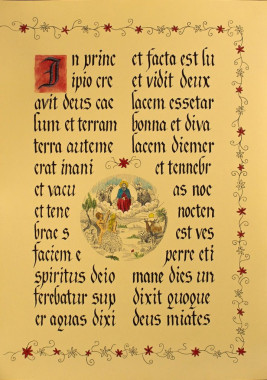 In princ
ipio cre
avit deus cae
lum et terram
terra auteme
erat inani
et vacu
et tene
brae s
faciem e
spiritus deio
ferebatur sup
er aquas dixi
et facta est lu
et vidit deux
lacem essetar
bonna et diva
lacem diemer
et tennebr
as noc
nocten
est ves
perre eti
mane dies un
dixit quoque
deus miates